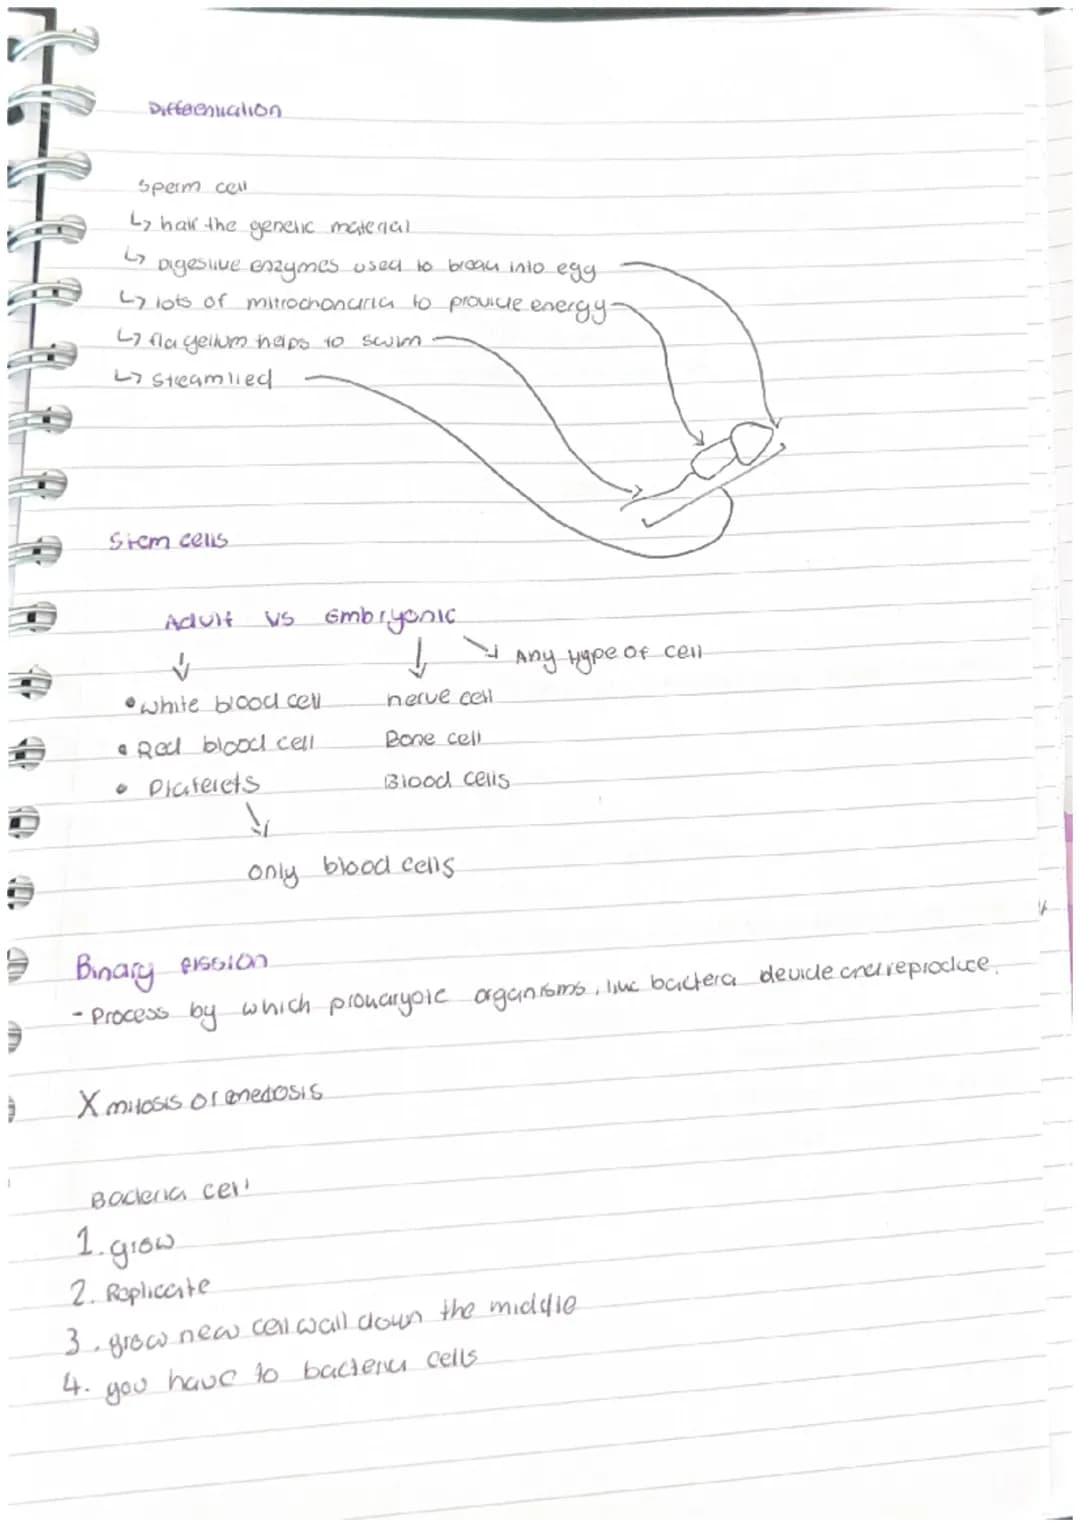 Differentiation
Sperm cell
↳ half the genetic material
↳ Digestive enzymes used to break into egg
↳ lots of mitrochondria to provide energy
↳ flagellum helps to swim
↳ Streamlied
Stem cells
Adult vs Embryonic
Any type of cell
• white blood cell nerve cell
• Red blood cell Bone cell
• Platelets Blood cells
only blood cells
Binary fission
- Process by which prokaryotic organisms, like bactera devide and reproduce.
X mitosis or
Bacteria cell
1. grow
2. Replicate
3. grow new cell wall down the middle
4. you have to bacteria cells